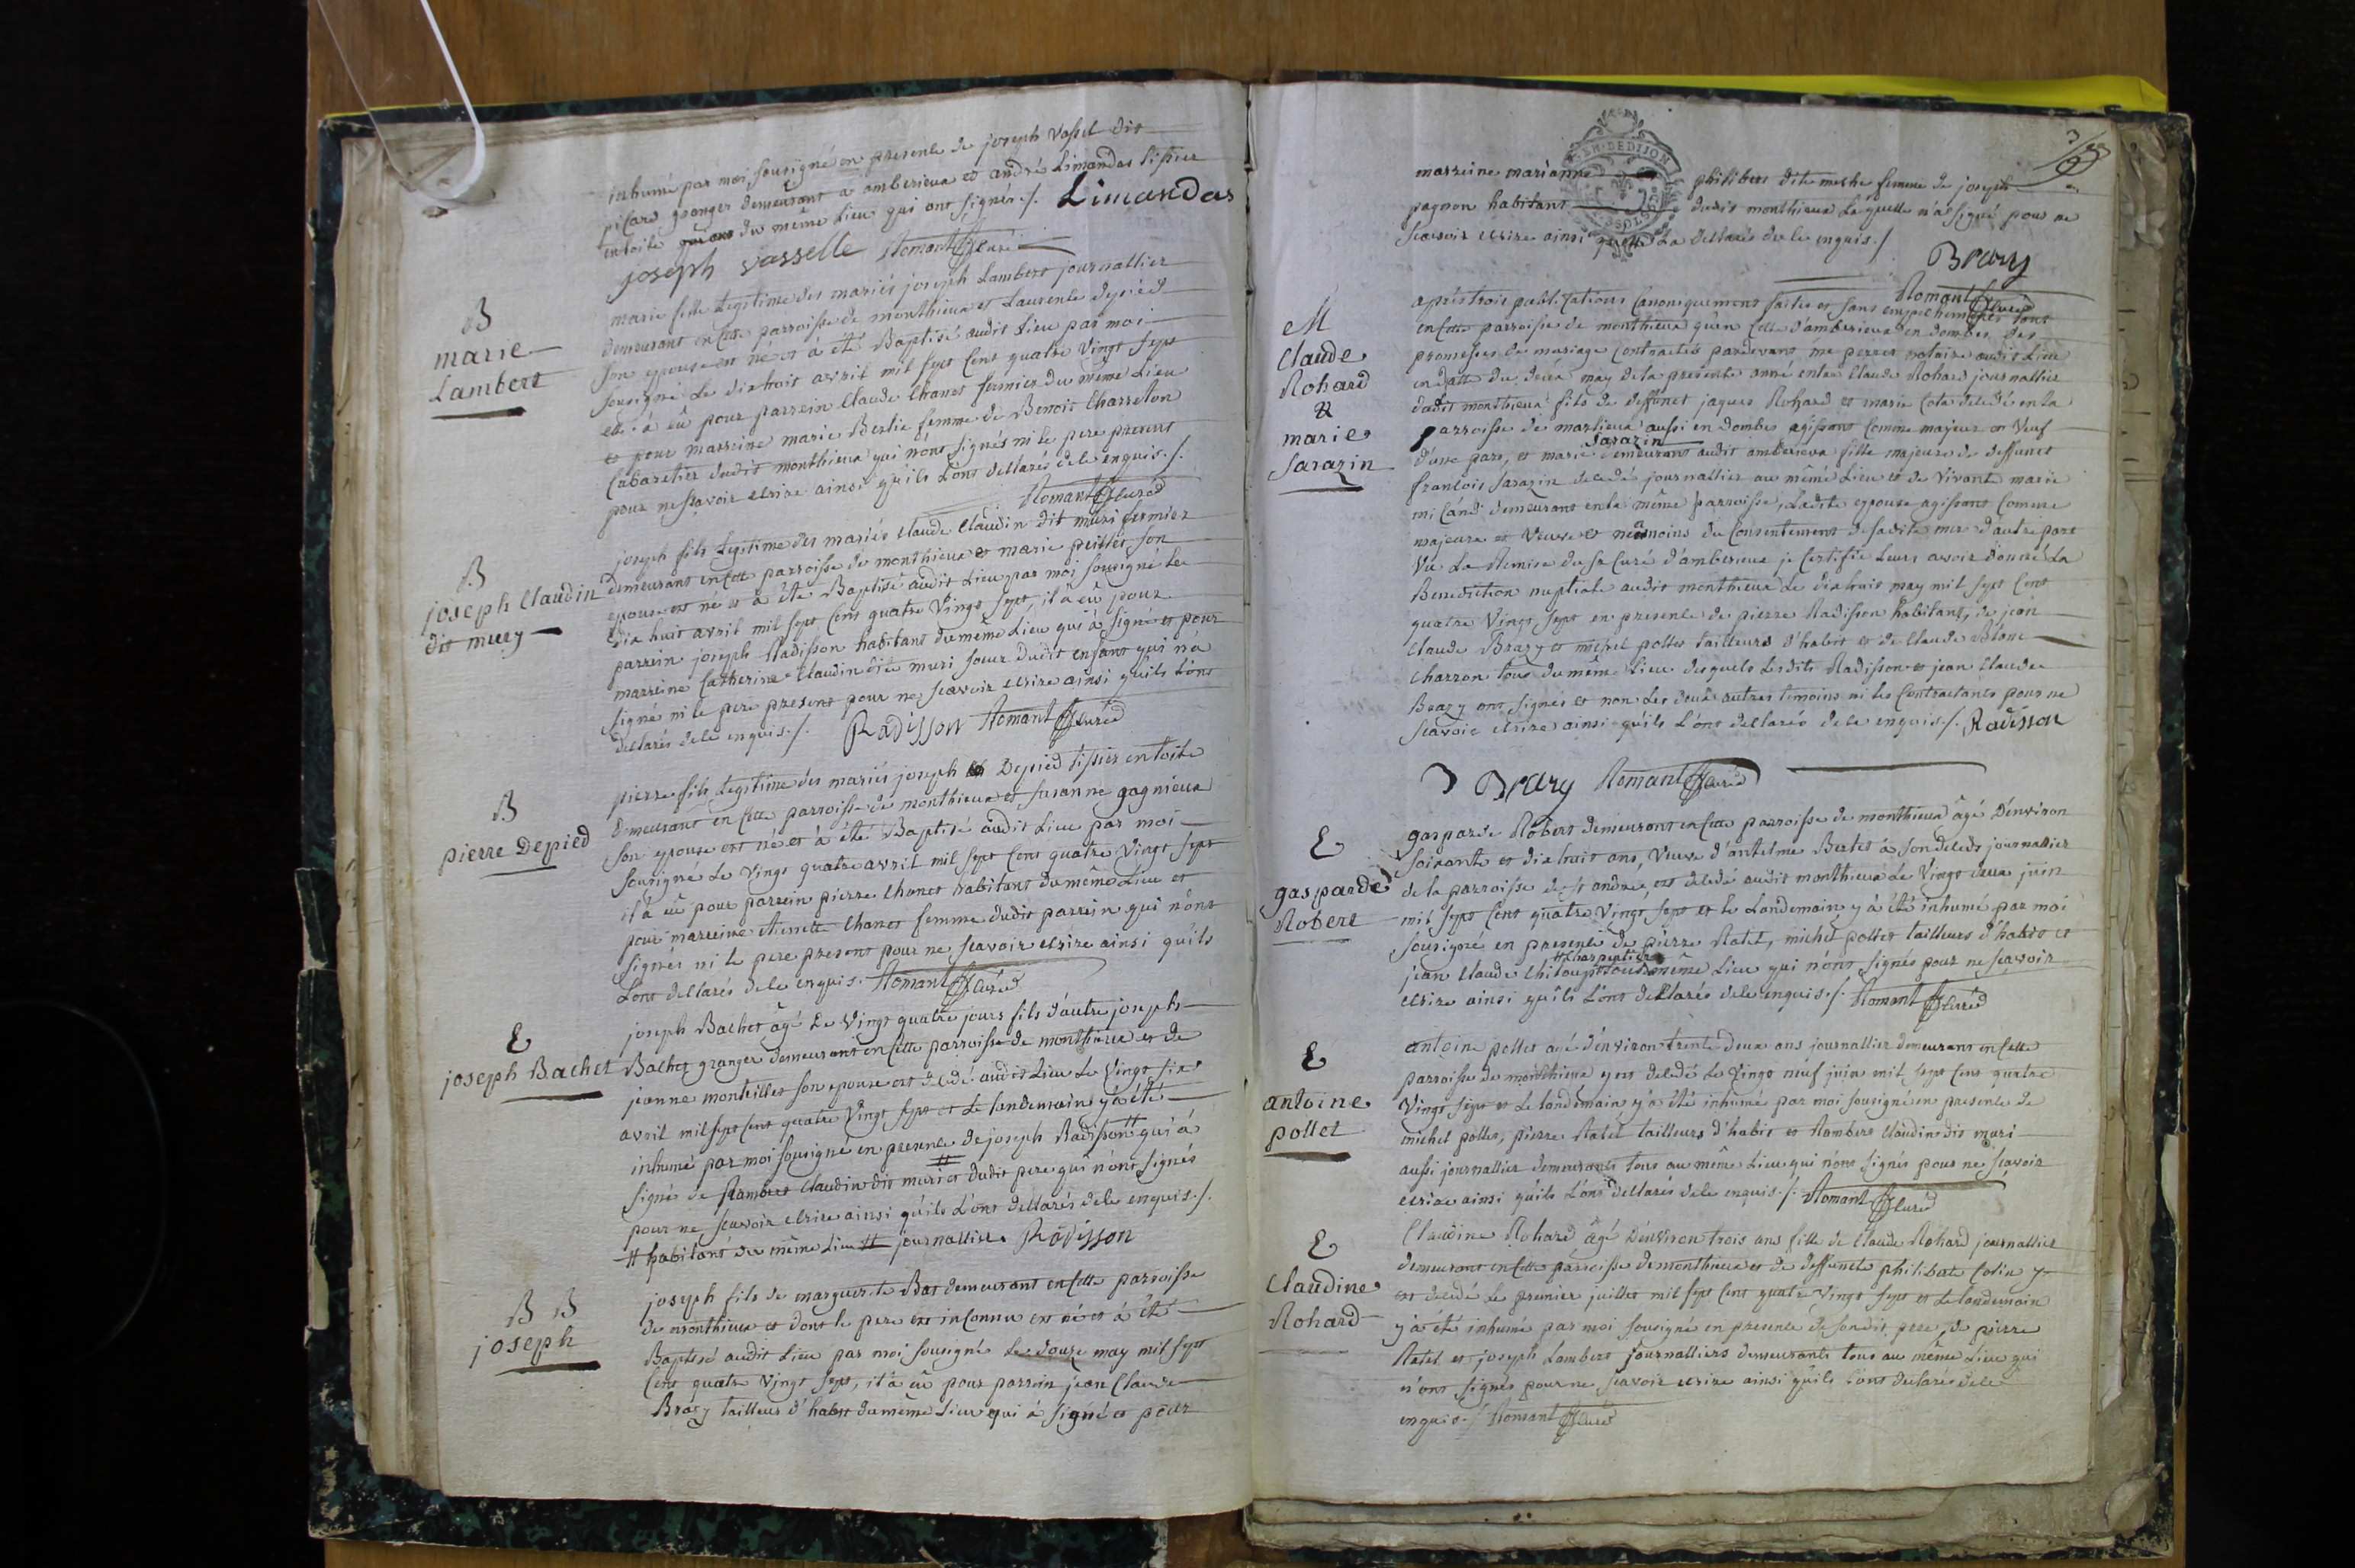 inhumé par moi sousigné en presence de joseph Vassel dit
picard granger demeurant a amberieux et andré Limandas tissier
en toile du même Lieu qui ont signés ./. Limandas
joseph vasselle Romant Curé
B
marie
Lambert
marie fille Legitime des mariés joseph Lambert journallier
demeurant en cette parroisse de monthieux et Laurence depied
son epouse est né et à été Baptisé audit Lieu par moi
sousigné Le dixhuit avril mil sept cent quatre Vingt sept
elle à eû pour parrein Claude Chanet fermier du même Lieu
et pour marreine marie Berlie femme de Benoit Charreton
Cabaretier dudit monthieux qui n'ont signés ni le pere present
pour ne scavoir ecrire ainsi qu'ils L'ont declarés de ce enquis ./.
Romant Curé
B
joseph Claudin
dit mury
joseph fils Legitime des mariés claude Claudin dit muri fermier
demeurant en cette parroisse de monthieux et marie peillet son
epouse est né et à été Baptisé audit Lieu par moi sousigné Le
Dix huit avril mil sept cent quatre Vingt sept, il à eû pour
parrein joseph Radisson habitant du même Lieu qui à signé et pour
marreine Catherine Claudin dite muri soeur dudit enfant qui n'a
signé ni le pere present pour ne scavoir ecrire ainsi qu'ils L'ont
declarés de ce enquis ./. Radisson Romant Curé
B
pierre Depied
pierre fils Legitime des mariés joseph Depied tissier en toile
demeurant en cette parroisse de monthieux et susanne gagnieux
son epouse est né et à été Baptisé audit Lieu par moi
sousigné Le Vingt quatre avril mil sept cent quatre Vingt sept
il à eû pour parrein pierre Chanet habitant du même Lieu et
pour marreine Chanet femme dudit parrein qui n'ont
signés ni le pere present pour ne scavoir ecrire ainsi qu'ils
L'ont declarés de ce enquis. Romant Curé
E
joseph Bachet
joseph Bachet âgé de Vingt quatre jours fils d'autre joseph
Bachet granger demeurant en cette parroisse de monthieux et de
jeanne monteillet son epouse est decedé audit Lieu Le Vingt six
avril mil sept cent quatre Vingt sept et Le landemain y à été
inhumé par moi sousigné en presence de joseph Radisson # qui à
signé de Rambert Claudin dit muri # et dudit pere qui n'ont signés
pour ne scavoir ecrire ainsi qu'ils L'ont declarés de ce enquis ./.
# habitant du même Lieu # journallier Radisson
B B
joseph
joseph fils de marguerite Bat demeurant en cette parroisse
de monthieux et dont le pere est inconnu est né et à été
Baptisé audit Lieu par moi sousigné Le douze may mil sept
cent quatre Vingt sept, il à eû pour parrein jean Claude
Brazy tailleur d'habit du même Lieu qui à signé et pour
marreine marianne philibert dite femme de joseph
pagnon habitant dudit monthieux Laquelle n'a signé pour ne
scavoir ecrire ainsi quelle La declarés de ce enquis ./.
Brazy
Romant Curé
GEN. DE DIJON
M
Claude
Rohard
&
marie
Sarazin
après trois publications Canoniquement faites et sans empechemens tant
en cette parroisse de monthieux qu'en celle d'amberieux en dombes des
promesses de mariage contractés pardevant me perret notaire audit Lieu
en datte du may de la presente année entre Claude Rohard journallier
dudit monthieux fils de deffunct jaques Rohard et marie Cota decedé en la
parroisse de marlieux aussi en dombes agissant comme majeur et Veuf
d'une part, et marie Sarazin demeurant audit amberieux fille majeure de deffunct
francois Sarazin decedé journallier au même Lieu et de Vivante marie
micand demeurant en la même parroisse, Ladite epouse agissant comme
majeure et Veuve et néamoins du Consentement de sadite mere d'autre part
Vû La Remise du Sr Curé d'amberieux je Certifie Leurs avoir donné La
Benediction nuptiale audit monthieux Le dixhuit may mil sept Cent
quatre Vingt sept en presence de pierre Radisson habitant, de jean
Claude Brazy et michel pollet tailleurs d'habit et de Claude Blanc
Charron tous du même Lieu desquels Lesdits Radisson et jean Claude
Brazy ont signés et non Les deux autres temoins ni les Contractants pour ne
scavoir ecrire ainsi qu'ils L'ont declarés de ce enquis ./. Radisson
J Brazy Romant Curé
E
gasparde
Robert
gasparde Robert demeurant en cette parroisse de monthieux âgé D'environ
soixante et dixhuit ans, Veuve d'antelme Bertet à son deceds journallier
de la parroisse de st andré, est decedé audit monthieux Le Vingt deux juin
mil sept cent quatre Vingt sept et le Landemain y à été inhumé par moi
sousigné en presence de pierre Ratet, michel pollet tailleurs d'habit et
jean Claude # charpentier tous même Lieu qui n'ont signés pour ne scavoir
ecrire ainsi qu'ils L'ont declarés de ce enquis ./. Romant Curé
E
antoine
pollet
antoine pollet agé d'environ trente deux ans journallier demeurant en cette
parroisse de monthieux y est decedé Le Vingt neuf juin mil sept cent quatre
Vingt sept et Le landemain y à été inhumé par moi sousigné en presence de
michel pollet, pierre Ratet tailleurs d'habit et Rambert Claudin dit muri
aussi journallier demeurants tous au même Lieu qui n'ont signés pour ne scavoir
ecrire ainsi qu'ils L'ont declarés de ce enquis ./. Romant Curé
E
Claudine
Rohard
Claudine Rohard âgé D'environ trois ans fille de Claude Rohard journallier
demeurant en cette parroisse de monthieux et de deffuncte philiberte Colin y
est decedé Le premier juillet mil sept cent quatre Vingt sept et Le landemain
y à été inhumé par moi sousigné en presence de sondit pere, de pierre
Ratet et joseph Lambert journalliers demeurants tous au même Lieu qui
n'ont signés pour ne scavoir ecrire ainsi qu'ils L'ont declarés de ce
enquis ./. Romant Curé